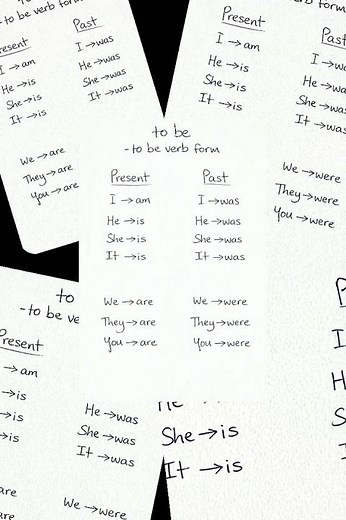 -to be verb
Past
I → am I → was
He → is He → was
She → is She → was
It → is It → was
We → are
They → are
You → are
verb form
Present Past
I → am I → was
He → is He → was
She → is She → was
It → is It → was
We → were
They → were
You → were
to be
-to be verb form
Present Past
I → am I → was
He → is He → was
She → is She → was
It → is It → was
We → are We → were
They → are They → were
You → are You → were
to
-to be ve
Present
→ am
→ is He → was
→ is She → was
→ is It → was
are We → were
She → is
It → is